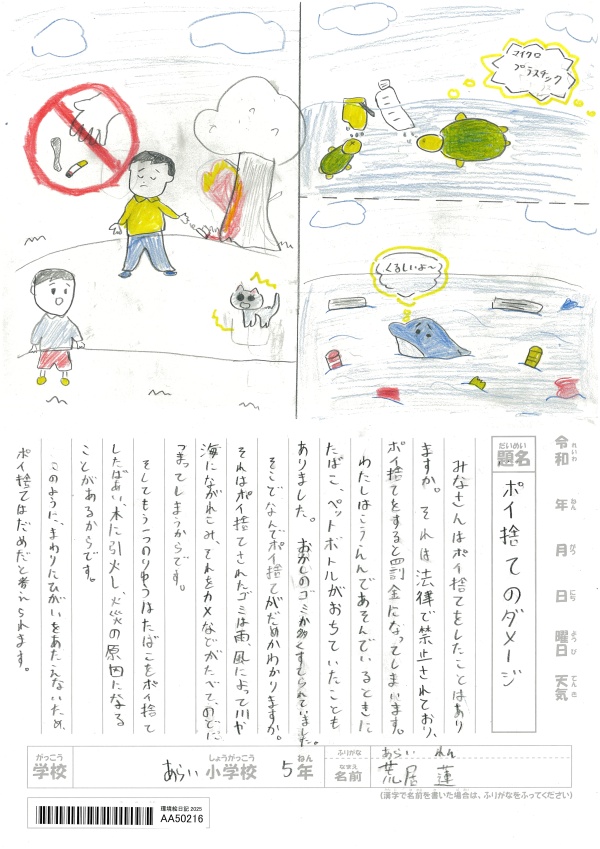 マイクロ
プラスチック
くるしいよ～
令和 れいわ
年 ねん
月 がつ
日 にち
曜日 ようび
天気 てんき
だいめい
題名
ポイ捨てのダメージ
みなさんはポイ捨てをしたことはあり
ますか。それは法律で禁止されており、
ポイ捨てをすると罰金になってしまいます。
わたしはこうえんであそんでいるときに
たばこ、ペットボトルがおちていたことも
ありました。おかしのゴミが多くすてられていました。
そこでなんでポイ捨てがだめかわかりますか。
それはポイ捨てされたゴミは雨、風によって川や
海にながれこみ、それをカメなどがたべて、のどに
つまってしまうからです。
そしてもう一つのりゆうはたばこをポイ捨て
したばあい、木に引火し、火災の原因になる
ことがあるからです。
このように、まわりにひがいをあたえないため、
ポイ捨てはだめだと考えられます。
がっこう
学校
あらい
しょうがっこう
小学校
5
ねん
年
ふりがな
あらい れん
なまえ
名前
荒居 蓮
(漢字で名前を書いた場合は、ふりがなをふってください)
環境絵日記2025
AA50216